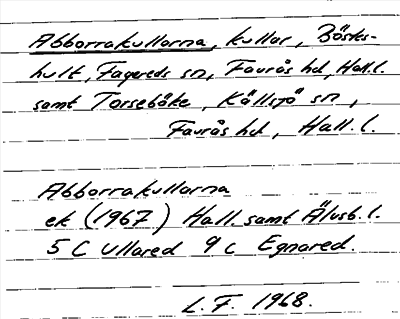 Abborrakullarna, kullar, Böske-
hult, Fagereds sn, Faurås hd, Hall. l.
samt Torsebåke, Källsjö sn,
Faurås hd, Hall. l.
Abborrakullarna
ek (1967) Hall. samt Älvsb. l.
5 C Ullared 9 c Egnared.
L. F. 1968.